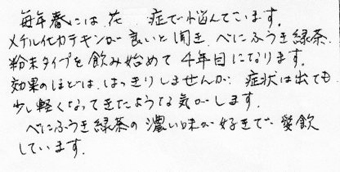 毎年春には花 症で悩んでいます。
メチル化カテキンが良いと聞き べにふうき緑茶
粉末タイプを飲み始めて4年目になります。
効果のほどは、はっきりしませんが、症状は出ても
少し軽くなってきたような気がします。
べにふうき緑茶の濃い味が好きで、愛飲
しています。